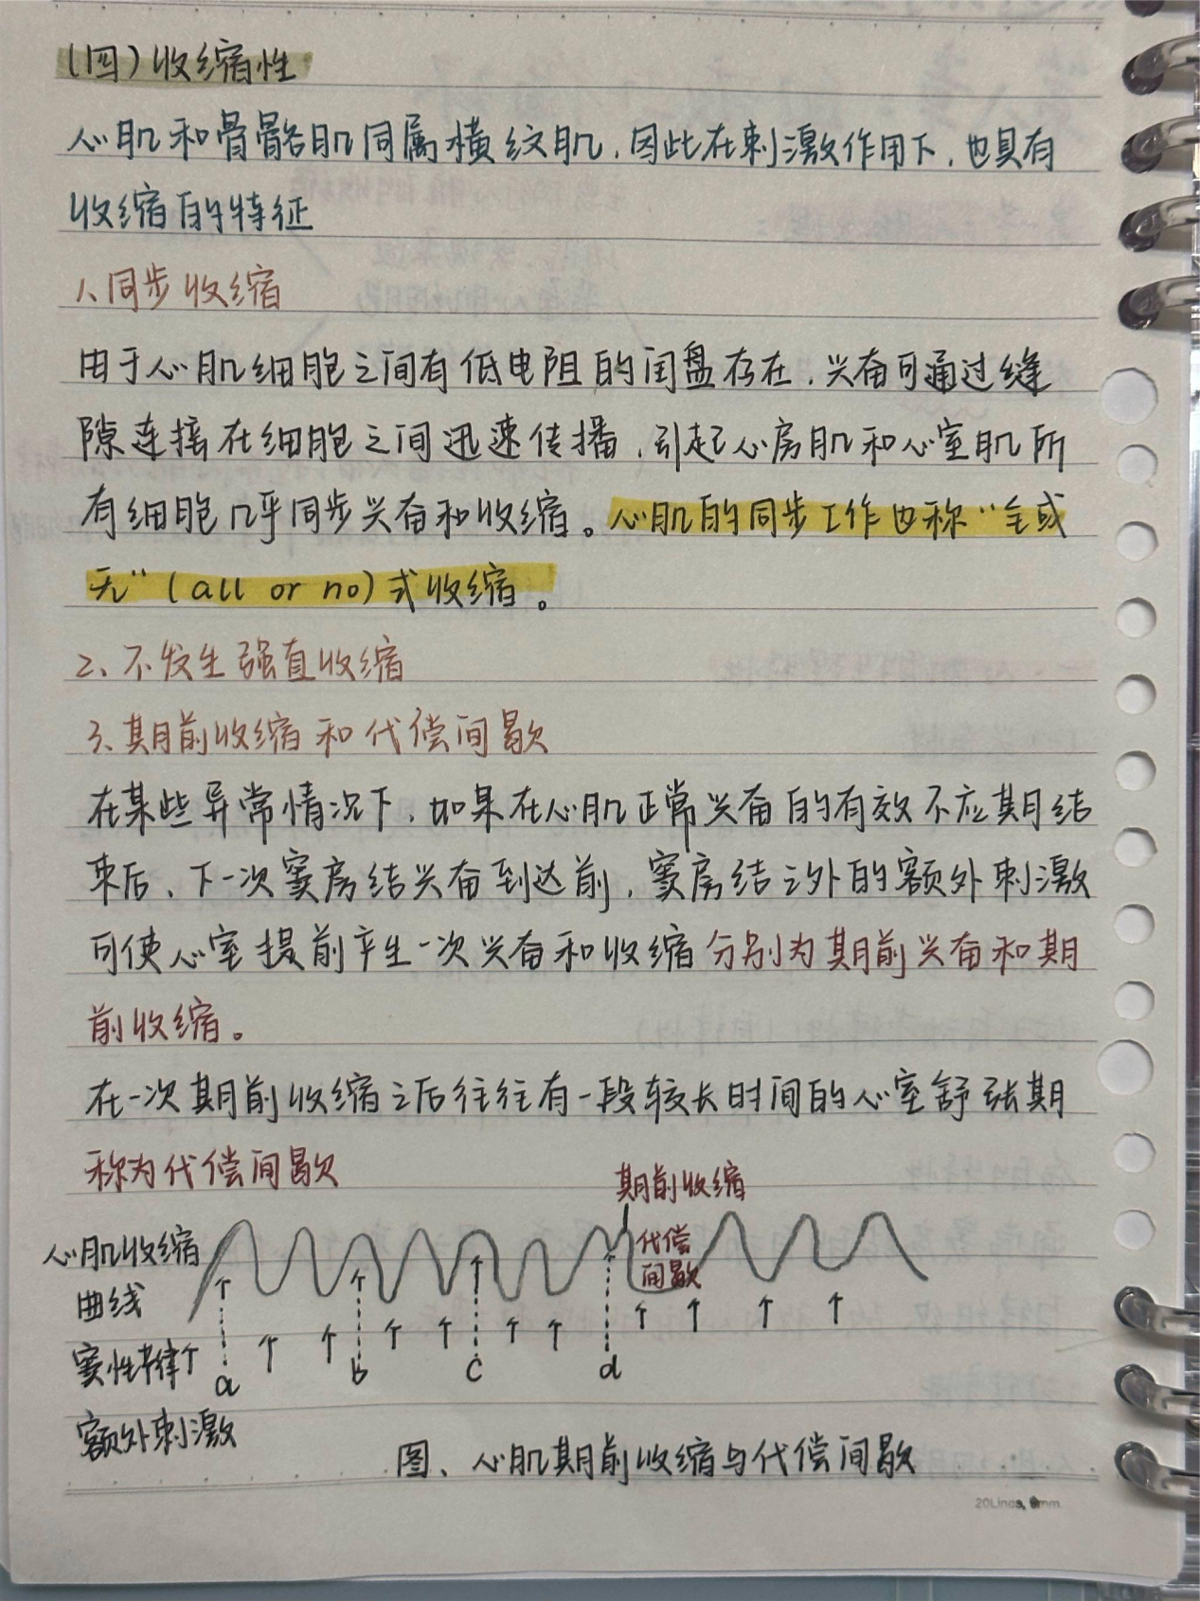 (四)收缩性
心肌和骨骼肌同属横纹肌,因此在刺激作用下,也具有
收缩的特征
1、同步收缩
由于心肌细胞之间有低电阻的闰盘存在,兴奋可通过缝
隙连接在细胞之间迅速传播,引起心房肌和心室肌所
有细胞几乎同步兴奋和收缩。心肌的同步工作也称“全或
无”(all or no)式收缩。
2、不发生强直收缩
3、期前收缩和代偿间歇
在某些异常情况下,如果在心肌正常兴奋的有效不应期结
束后、下一次窦房结兴奋到达前,窦房结之外的额外刺激
可使心室提前产生一次兴奋和收缩分别为期前兴奋和期
前收缩。
在一次期前收缩之后往往有一段较长时间的心室舒张期
称为代偿间歇
期前收缩
心肌收缩
曲线
代偿
间歇
窦性节律
a b c d
额外刺激
图、心肌期前收缩与代偿间歇
20Lines, 8mm.